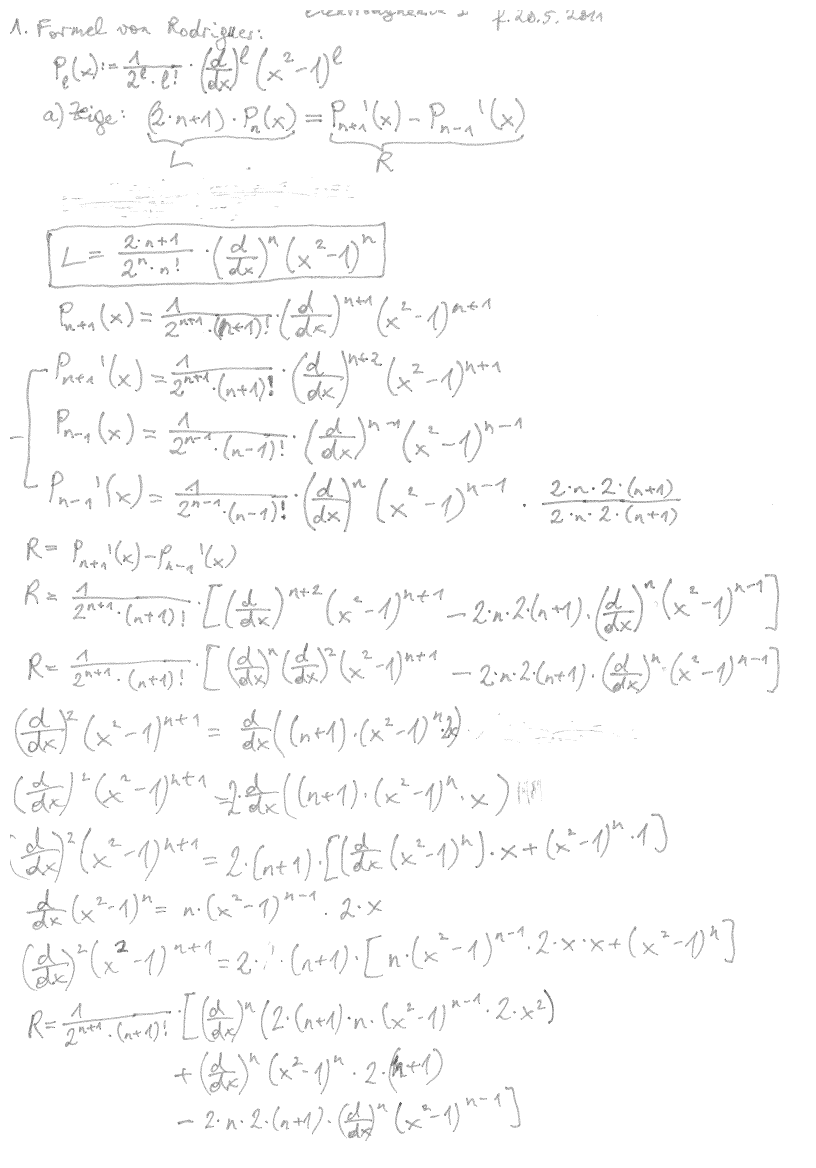 f. 20.5.2011
1. Formel von Rodrigues:
P_l(x) := 1/(2^l · l!) · (d/dx)^l (x² - 1)^l
a) Zeige: (2·n+1) · P_n(x) = P_{n+1}'(x) - P_{n-1}'(x)
L R
L = (2·n+1)/(2^n · n!) · (d/dx)^n (x² - 1)^n
P_{n+1}(x) = 1/(2^{n+1} · (n+1)!) · (d/dx)^{n+1} (x² - 1)^{n+1}
P_{n+1}'(x) = 1/(2^{n+1} · (n+1)!) · (d/dx)^{n+2} (x² - 1)^{n+1}
- P_{n-1}(x) = 1/(2^{n-1} · (n-1)!) · (d/dx)^{n-1} (x² - 1)^{n-1}
P_{n-1}'(x) = 1/(2^{n-1} · (n-1)!) · (d/dx)^n (x² - 1)^{n-1} · (2·n·2·(n+1))/(2·n·2·(n+1))
R = P_{n+1}'(x) - P_{n-1}'(x)
R = 1/(2^{n+1} · (n+1)!) · [(d/dx)^{n+2} (x² - 1)^{n+1} - 2·n·2·(n+1) · (d/dx)^n (x² - 1)^{n-1}]
R = 1/(2^{n+1} · (n+1)!) · [(d/dx)^n (d/dx)² (x² - 1)^{n+1} - 2·n·2·(n+1) · (d/dx)^n · (x² - 1)^{n-1}]
(d/dx)² (x² - 1)^{n+1} = d/dx ((n+1) · (x² - 1)^n 2x)
(d/dx)² (x² - 1)^{n+1} = 2·d/dx ((n+1) · (x² - 1)^n · x)
(d/dx)² (x² - 1)^{n+1} = 2·(n+1) · [(d/dx (x² - 1)^n) · x + (x² - 1)^n · 1]
d/dx (x² - 1)^n = n · (x² - 1)^{n-1} · 2·x
(d/dx)² (x² - 1)^{n+1} = 2 · (n+1) · [n · (x² - 1)^{n-1} · 2·x·x + (x² - 1)^n]
R = 1/(2^{n+1} · (n+1)!) · [(d/dx)^n (2·(n+1)·n · (x² - 1)^{n-1} · 2·x²)
+ (d/dx)^n (x² - 1)^n · 2·(n+1)
- 2·n·2·(n+1) · (d/dx)^n (x² - 1)^{n-1}]